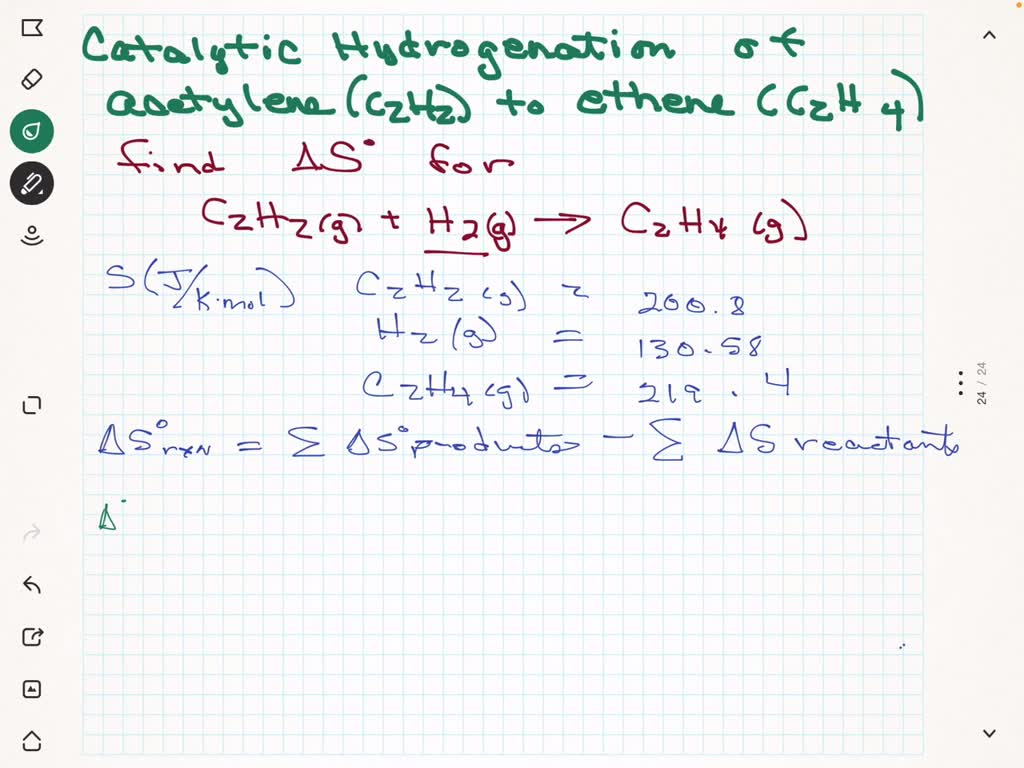 Catalytic Hydrogenation of
asetylene (C2H2) to ethene (C2H4)
find ΔS° for
C2H2(g) + H2(g) → C2H4(g)
S(J/K·mol) C2H2(g) = 200.8
H2(g) = 130.58
C2H4(g) = 219.4
ΔS°rxn = Σ ΔS°products - Σ ΔS reactants
Δ
24 / 24